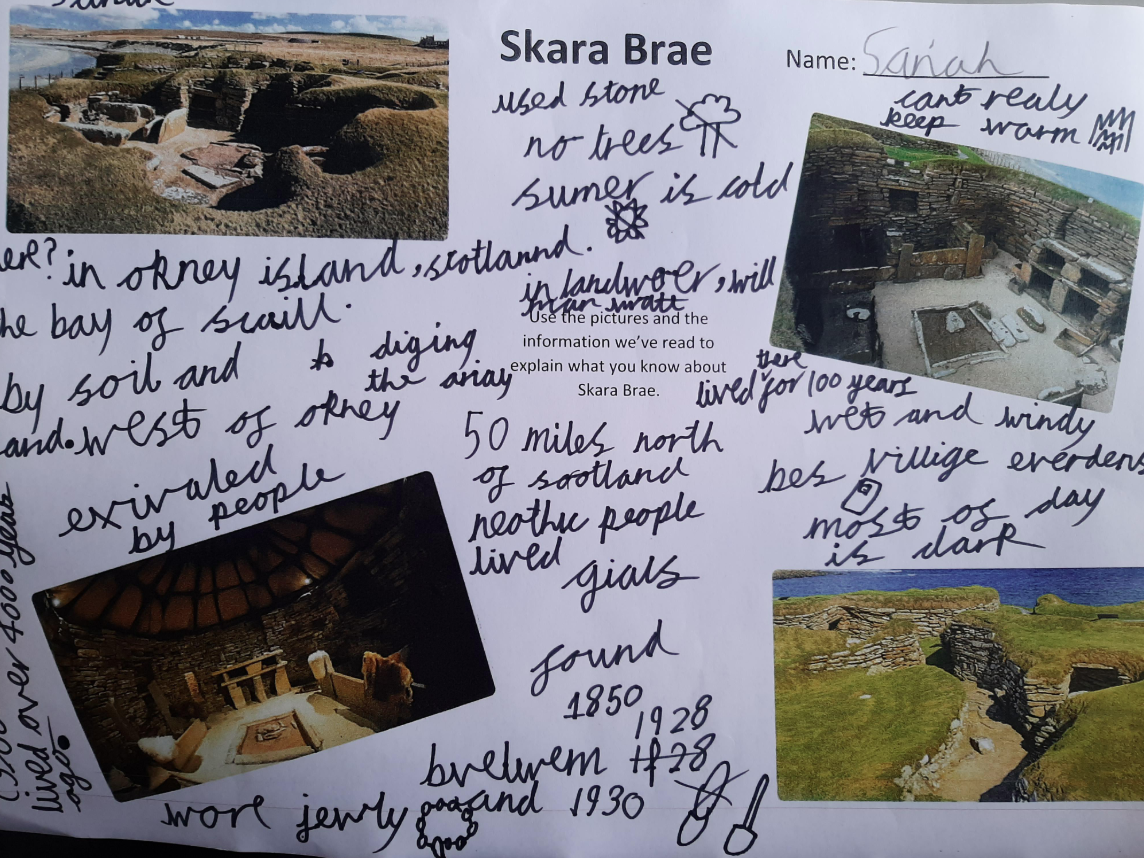 Skara Brae
Name: Sanah
used stone
no trees
sumer is cold
cant realy
keep warm
ere? in orkney island, scotlannd.
he bay of scaill.
by soil and
and. west of orkney
diging
the ariay
in landwoer, will
Use the pictures and the
information we've read to
explain what you know about
Skara Brae.
there
lived for 100 years
wet and windy
bes villige everdens
most of day
is dark
50 miles north
of scotland
neothic people
lived
gials
exivaled
by people
found
1850
1928
bvetwem 1928
and 1930
wore jewly
lived over 4000 years
ago.